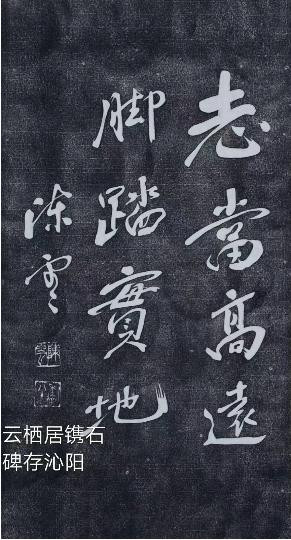 志當高遠
脚踏實地
陈雲
云栖居镌石
碑存沁阳